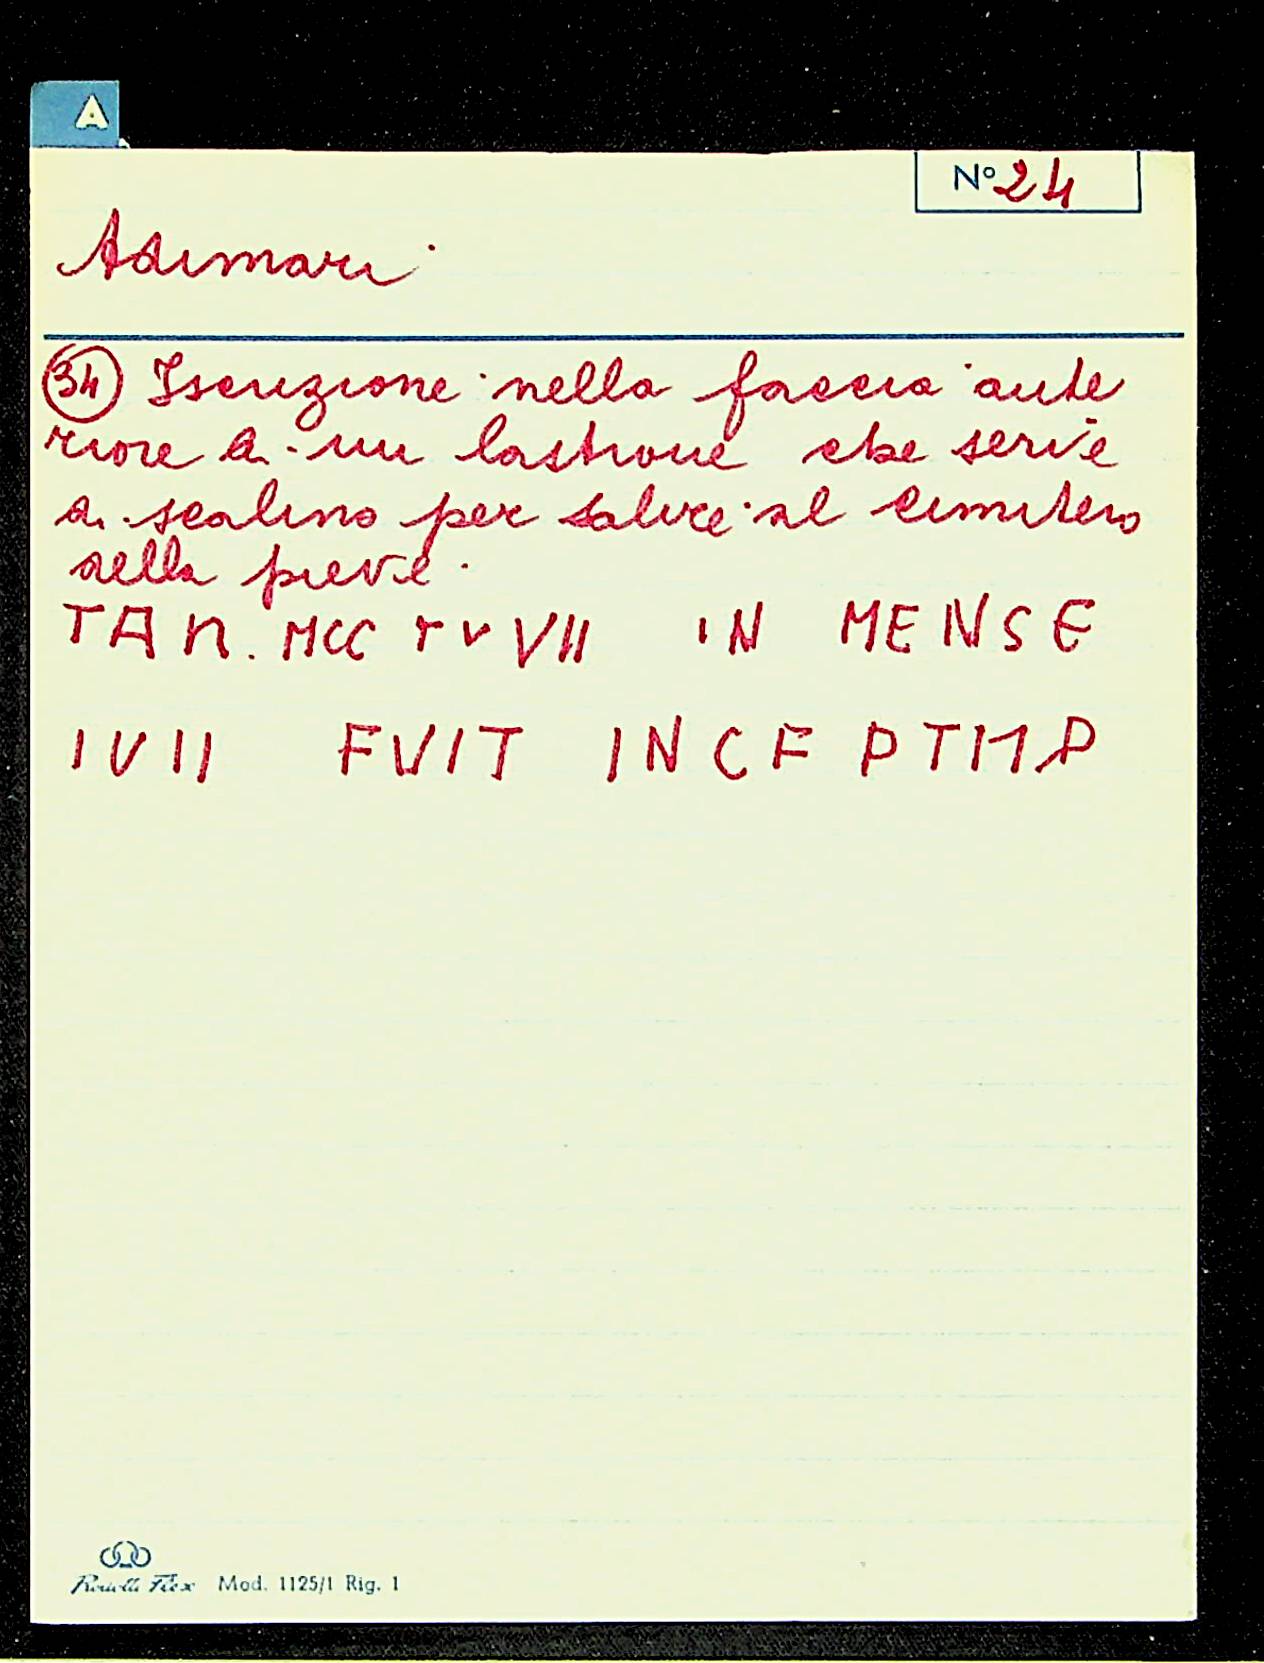 A
N° 24
Adimari
34 Iscrizione nella faccia ante
riore a un lastrone che serve
a scalino per salire al cimitero
della pieve.
TAN. MCC TVVII IN MENSE
IVII FVIT INCF PTMP
Mod. 1125/1 Rig. 1